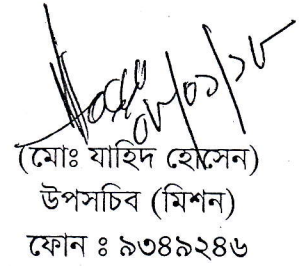 (মোঃ যাহিদ হোসেন)
উপসচিব (মিশন)
ফোন ঃ ৯৩৪৯২৪৬